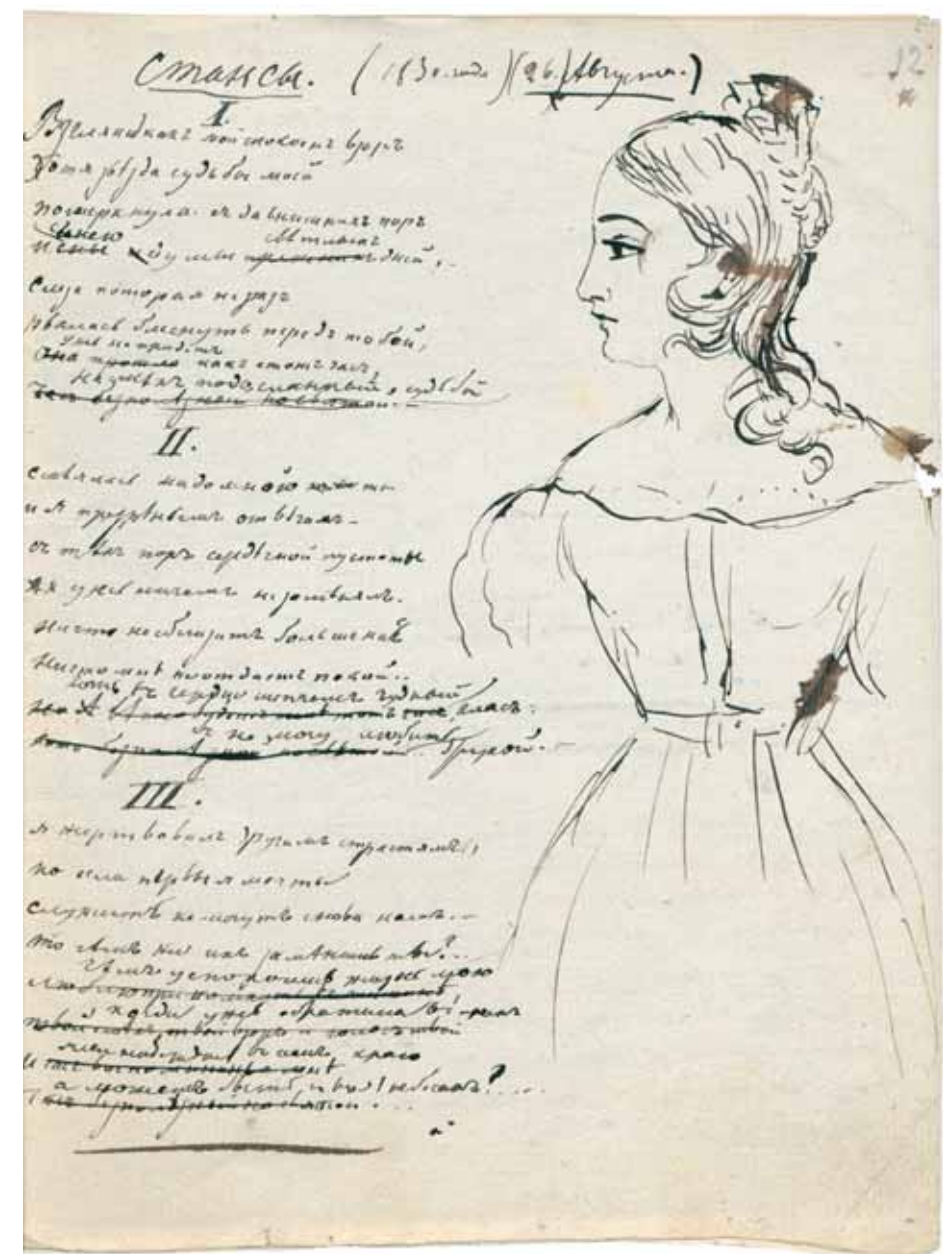 Стансы. (1830 года) (26 Августа.)
I.
Взгляни какъ мой спокоенъ взоръ
Хотя звѣзда судьбы моей
померкнула съ давнишнихъ поръ
с нею свѣтлыхъ
и думы дней,..
слеза которая не разъ
рвалась блеснуть передъ тобой,
ужъ не придетъ
какъ этотъ часъ,
на смѣхъ подосланный, судьбой
II.
смѣялась надо мною ты
и я презрѣньемъ отвѣчалъ –
съ тѣхъ поръ сердечной пустоты
я ужъ ничемъ не замѣнялъ.
Ничто не сблизитъ больше насъ
Ничто мнѣ не отдастъ покой..
хоть въ сердце шепчетъ чудный
гласъ:
я не могу любить
другой.
III.
я жертвовалъ другимъ страстямъ,
но если первыя мечты
служить не могутъ снова намъ –
то чѣмъ же ихъ замѣнишь ты?..
Чѣмъ успокоишь жизнь мою
когда ужъ обратила въ прахъ
мои надежды въ семъ краю
а можетъ быть и въ небесахъ?....
12